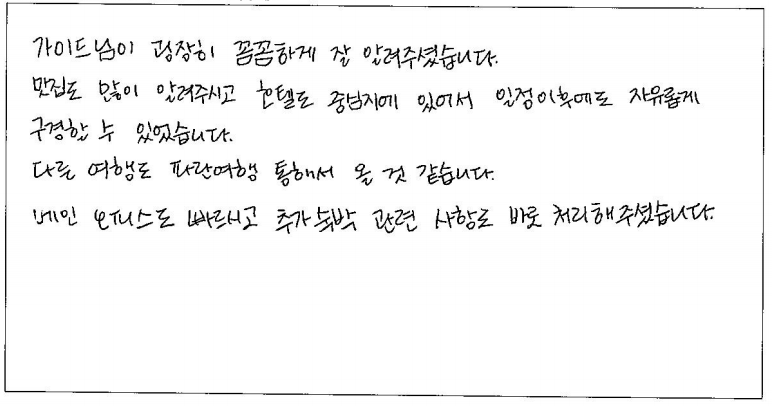 가이드님이 굉장히 꼼꼼하게 잘 알려주셨습니다.
맛집도 많이 알려주시고 호텔도 중심지에 있어서 일정이후에도 자유롭게
구경할 수 있었습니다.
다른 여행도 파란여행 통해서 올 것 같습니다.
메인 오피스도 빠르시고 추가숙박 관련 사항도 바로 처리해주셨습니다.